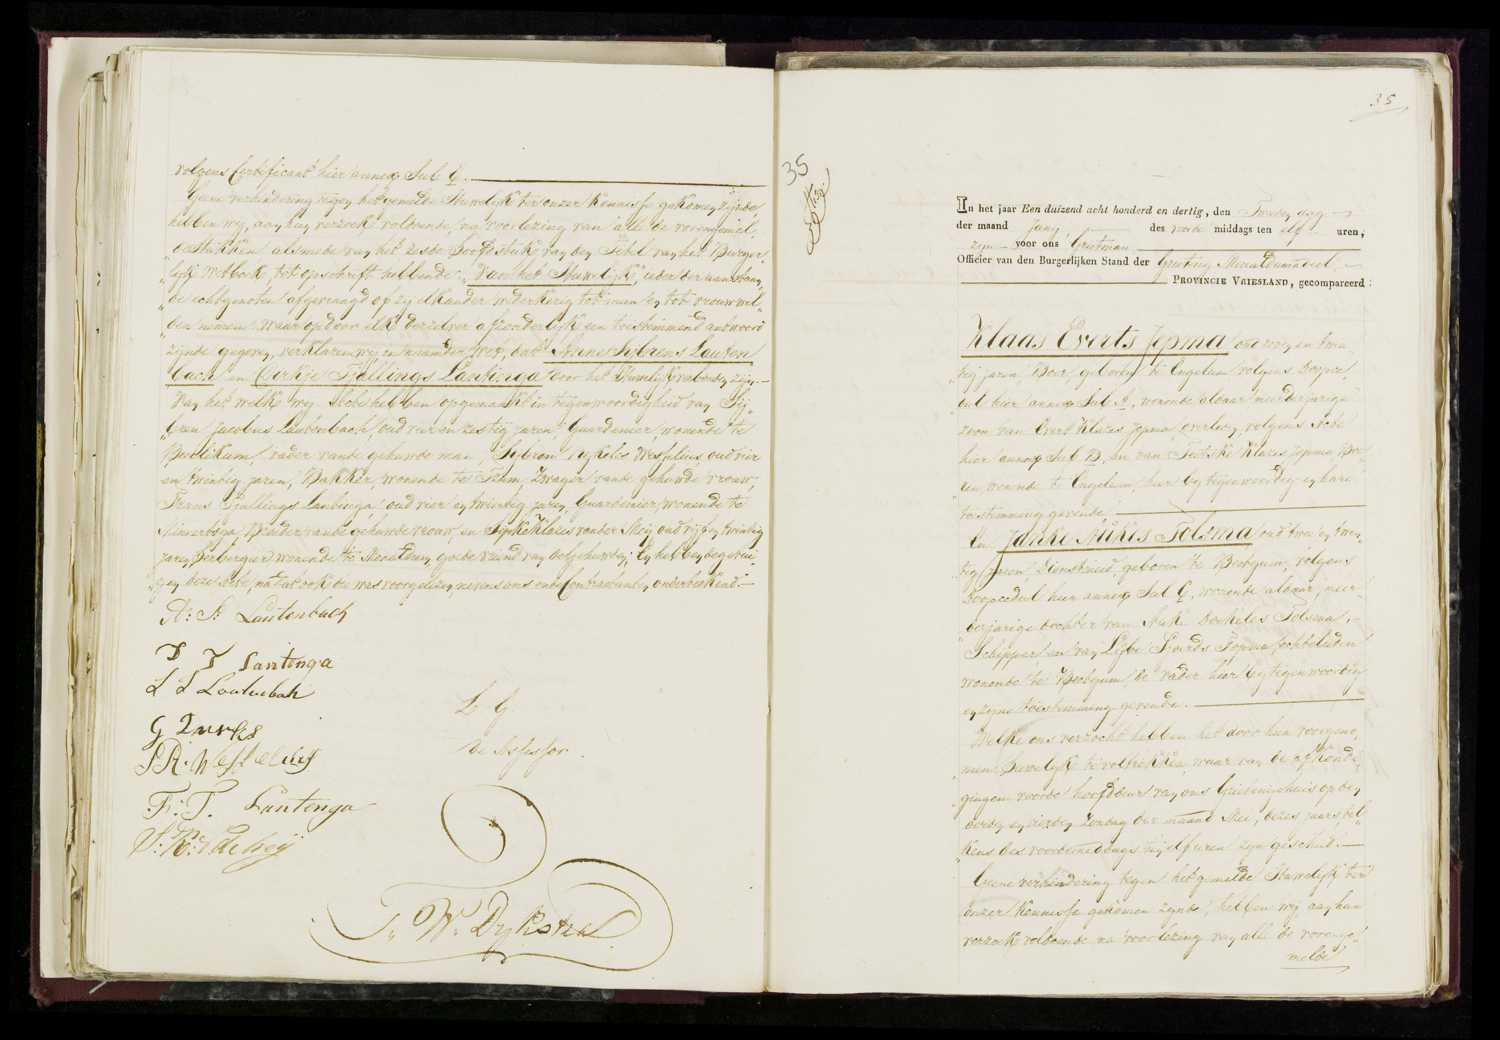 volgens Certificaat hier annex Sub E.
Geene verhindering tegen het gemelde Huwelijk ter onzer kennisse gekomen zijnde,
hebben wij, aan hun verzoek voldoende, na voorlezing van alle de vorengemel„
de stukken alsmede van het zesde hoofdstuk van den Titel van het Burger„
„lijk Wetboek, tot opschrift hebbende: Van het Huwelijk, ieder der aanstaan„
„de echtgenoten afgevraagd of zij elkander wederkerig tot man en tot vrouw wil„
„den nemen: Waarop door elk derzelver afzonderlijk een toestemmend antwoord
zijnde gegeven, verklaren wij in naam der Wet, dat Anne Sybrens Lauten
bach en Tjallings Lautinga door het Huwelijk verbonden zijn.—
Van het welke wij Acte hebben opgemaakt in tegenwoordigheid van Sy„
bren Jacobus Lautenbach, oud vier en zestig jaren, Guardenier, wonende te
Berlikum, vader van de gehuwde man, Sybren Rykeles Westelius, oud vier
en twintig jaren, Bakker, wonende te zwager van de gehuwde vrouw
Frans Tjallings Lautinga oud vier en twintig jaren, Guardenier, wonende te
Minnertsga, Broeder van de gehuwde vrouw, en Klazes van der Meij, oud vijf en twintig
jaren, Herbergier wonende te Menaldum, goede vriend van de gehuwden; en hebben degetui„
gen deze Acte, nadat ook die was voorgelezen, nevens ons en de Contractanten, onderteekend.—
A: S: Lautenbach
T T Lantinga
S J Loutenbah
G Durks
S R. Westelius
F. T. Lantenga
S: K: v de Meij
L G
De Assessor.
T. W. Dijkstra
35
35
In het jaar Een duizend acht honderd en dertig, den Tweeden dag
der maand Junij, des voorde middags ten elf uren,
zijn voor ons Grietman
Officier van den Burgerlijken Stand der Grietenij Menaldumadeel
PROVINCIE VRIESLAND, gecompareerd:
Klaas Everts Jopma oud een en twin„
„tig jaren, Boer, geboren te Engelum volgens Doopce„
dul hier annex Sub A, wonende aldaar meerderjarige
zoon van Evert Klazes Jopma, overleden, volgens Acte
hier annex Sub B, en van Klazes Jopma, Boe„
rin wonende te Engelum, hier bij tegenwoordig en hare
toestemming gevende.
En Janke Aukes Tolsma oud twee en twin„
„tig jaren, Dienstmeid, geboren te Beetgum, volgens
Doopcedul hier annex Sub C, wonende aldaar, meer„
derjarige dochter van Auke Doekeles Tolsma,
Schipper en van Lijbe Sjoerds Topma, echtelieden
wonende te Beetgum, de vader hier bij tegenwoordig
en zijne toestemming gevende.
Welke ons verzocht hebben het door hen voorgeno„
mene Huwelijk te voltrekken, waar van de afkondi„
gingen voor de hoofddeur van ons Grietenijhuis op den
derden en vierden Zondag der maand Mei, dezes jaars tel„
kens des voordemiddags te elf uren zijn geschied.—
Geene verhindering tegen het gemelde Huwelijk ter
onzer kennisse gekomen zijnde, hebben wij aan hun
verzoek voldoende na voorlezing van alle de vorenge„
melde